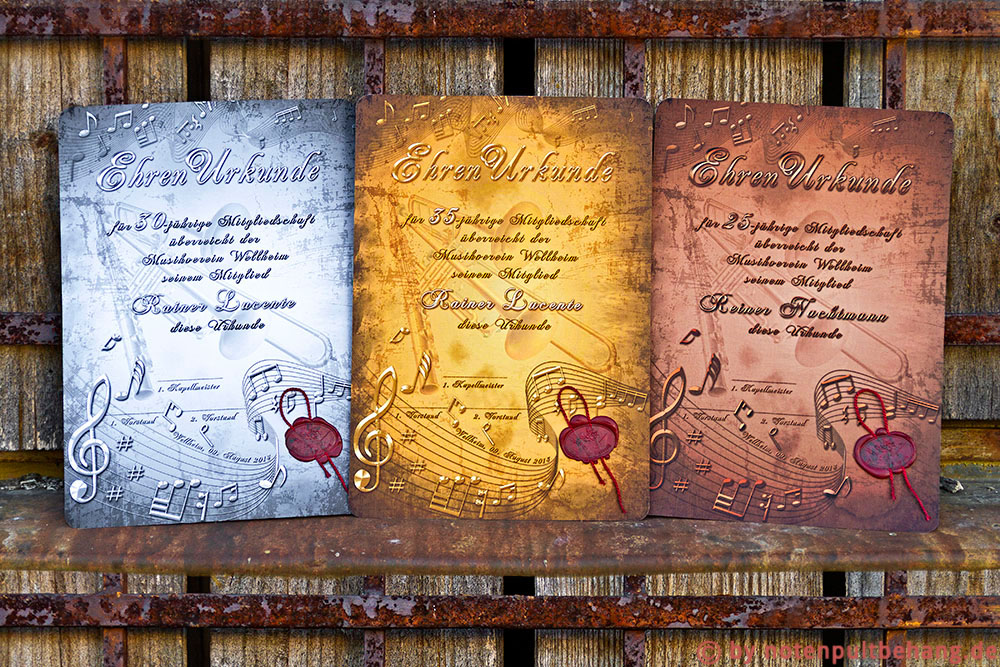 EhrenUrkunde
für 30-jährige Mitgliedschaft
überreicht der
Musikverein Wellheim
seinem Mitglied
Rainer Lucente
diese Urkunde
1. Kapellmeister
1. Vorstand 2. Vorstand
Wellheim, 09. August 2013
EhrenUrkunde
für 35-jährige Mitgliedschaft
überreicht der
Musikverein Wellheim
seinem Mitglied
Rainer Lucente
diese Urkunde
1. Kapellmeister
1. Vorstand 2. Vorstand
Wellheim, 09. August 2013
EhrenUrkunde
für 25-jährige Mitgliedschaft
überreicht der
Musikverein Wellheim
seinem Mitglied
Reiner Nachtmann
diese Urkunde
1. Kapellmeister
1. Vorstand 2. Vorstand
Wellheim, August
© by notenpultbehang.de